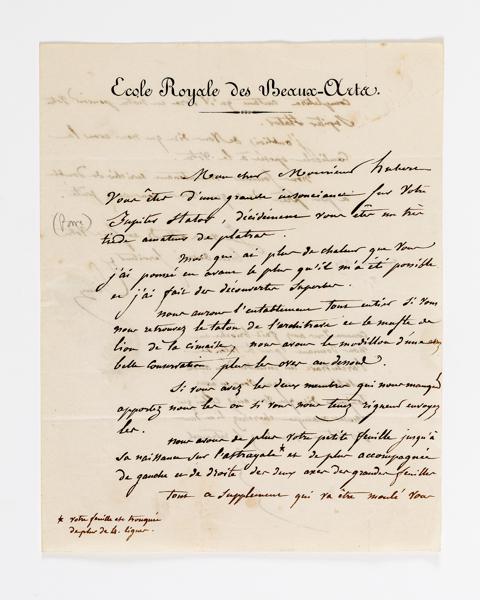 Ecole Royale des Beaux-Arts.
Mon cher Monsieur hubert
Vous êtes d'une grande insouciance sur votre
Jupiter Stator, décidément vous êtes un très
tiede amateur de platras.
(Rome)
moi qui ai plus de chaleur que vous
j'ai poussé en avant le plus qu'il m'a été possible
et j'ai fait des découvertes superbes.
nous aurons l'entablement tout entier si vous
nous retrouvez le talon de l'architrave et le muffle de
lion de la cimaise, nous avons le modillon d'une
belle conservation plus les oves au dessous.
Si vous avez les deux membres qui nous manquent
apportez nous les ou si vous nous tenez rigueur envoyez
les.
nous avons de plus votre petite feuille jusqu'à
sa naissance sur l'astragale* et de plus accompagnée
de gauche et de droite des deux axes des grandes feuilles
tout ce supplement qui va être moulé vous
* votre feuille est tronquée
de plus de 4. lignes.